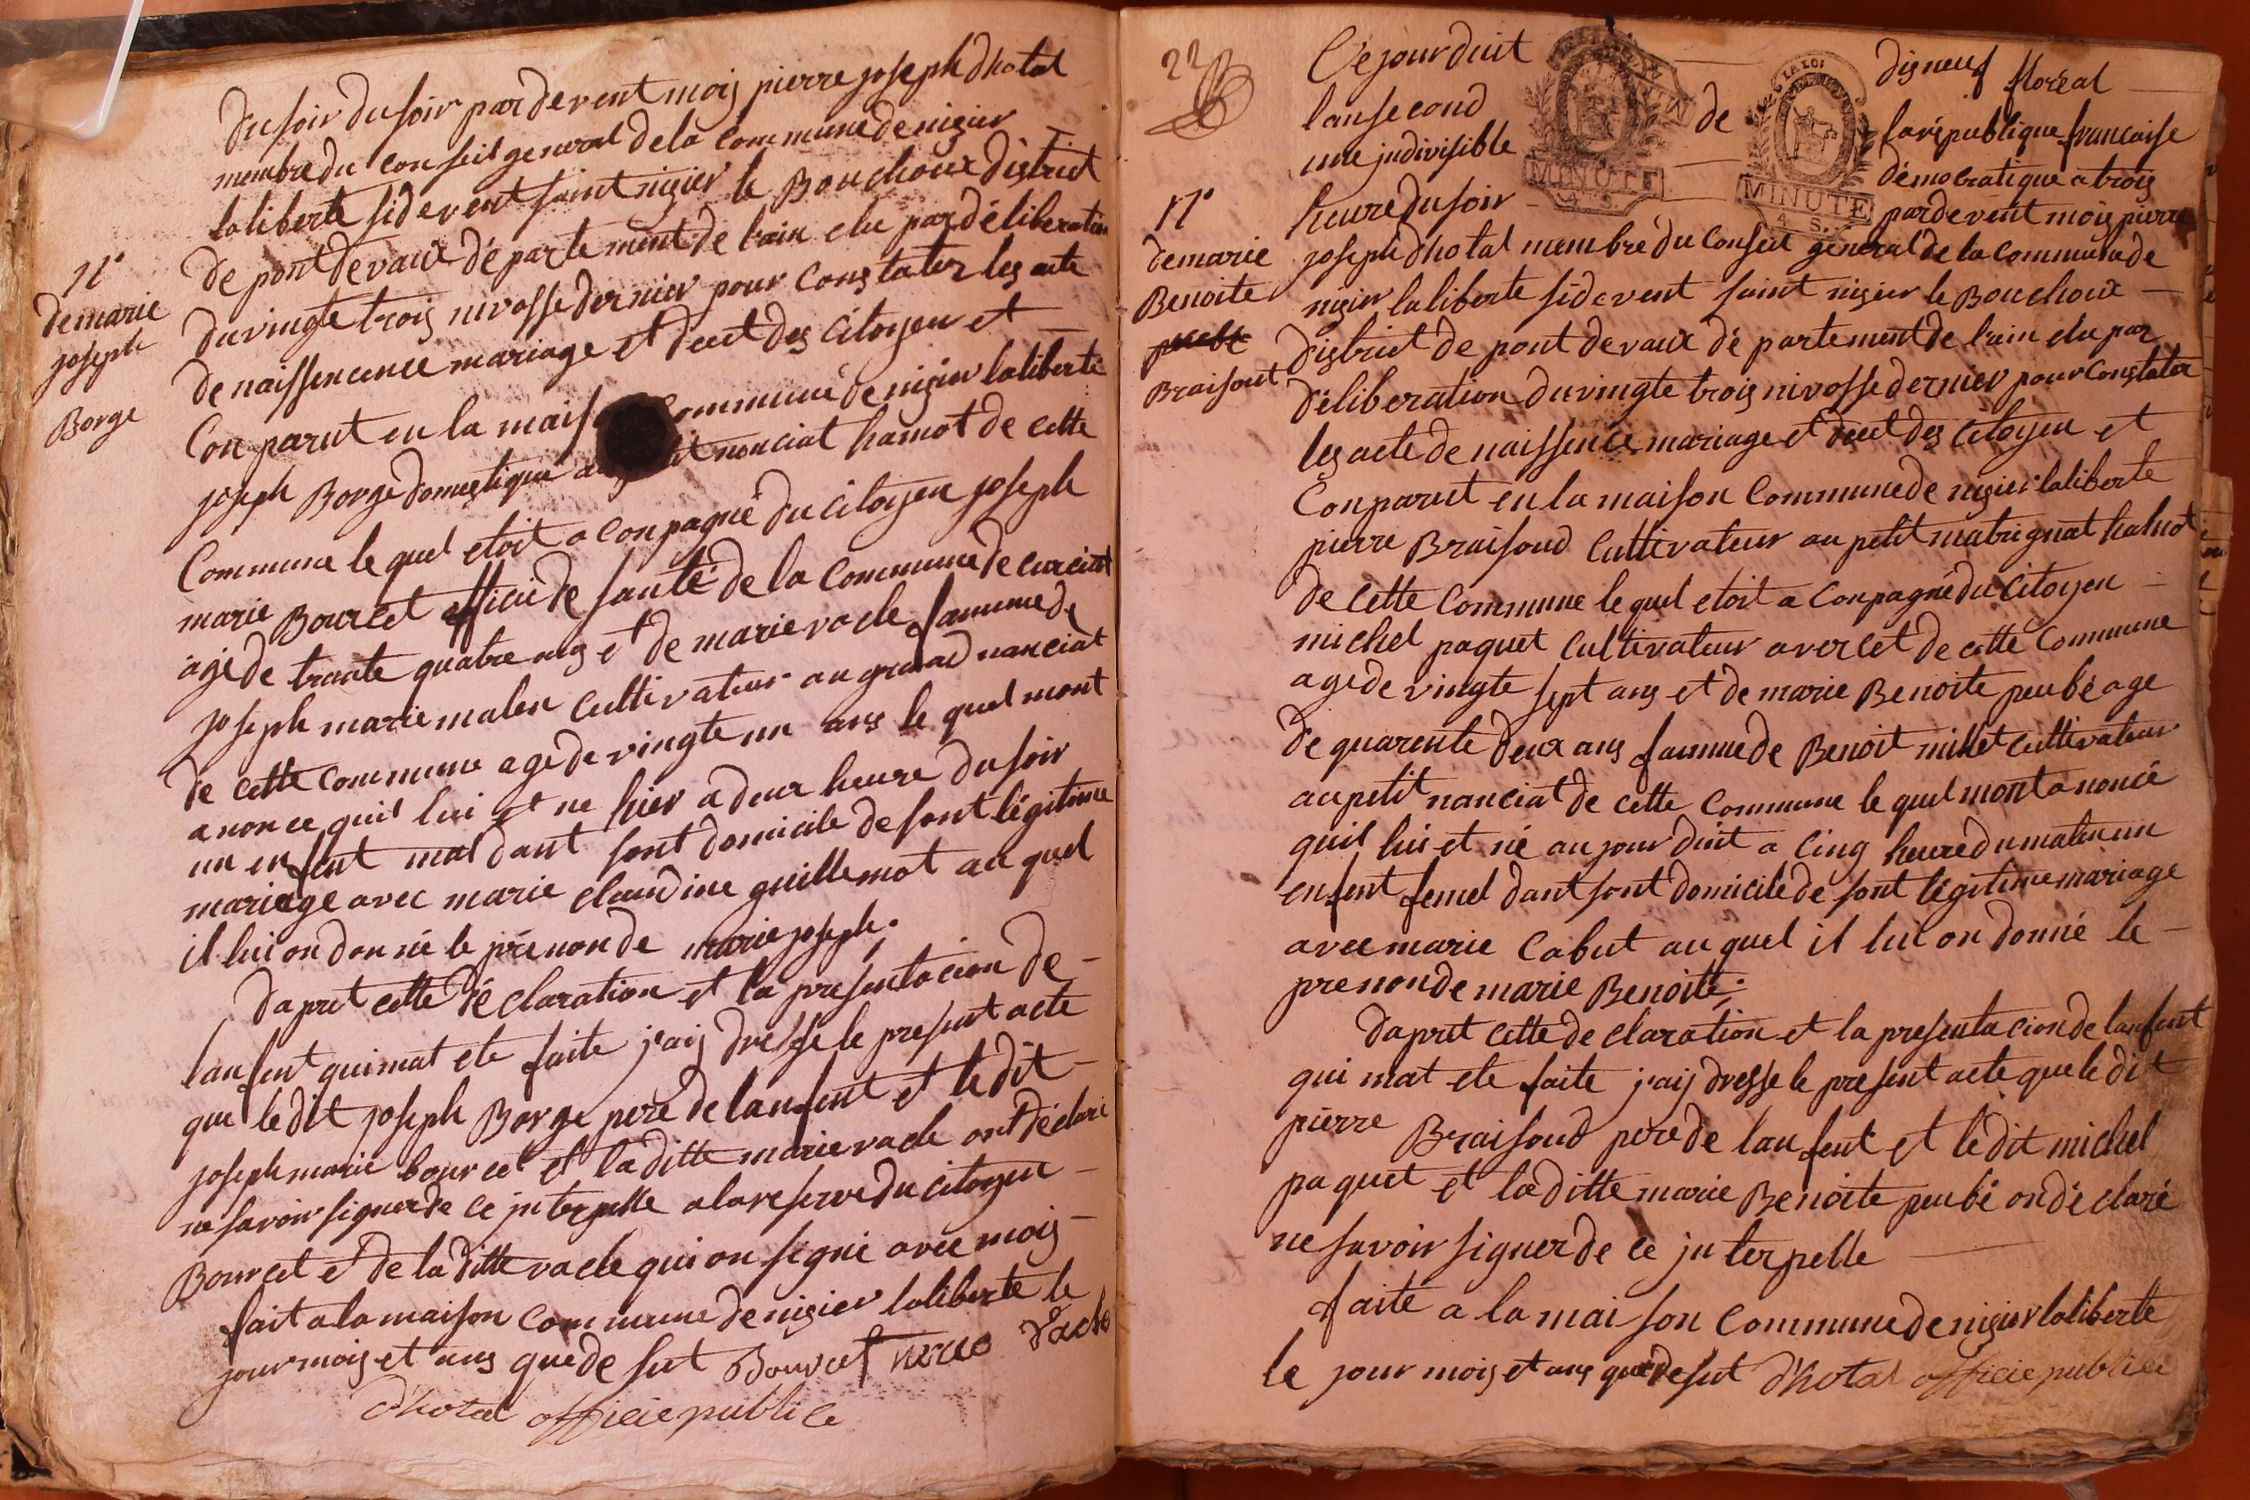 du soir du soir par devent mois pierre joseph dhotal
membre du conseil general de la commune de nisier
la liberte si devent saint nisier le Bouchoux district
de pont devaux département de lain elu par déliberation
du vingte trois nivosse dernier pour constater les acte
de naissencence mariage et decet des citoyen et
Con parut en la mais commune de nisier la liberté
joseph Borge domestique a nonciat hamot de cette
Commune le quel etoit a conpagné du citoyen joseph
marie Bourcet officié de santé de la commune de curciat
age de trante quatre ans et de marie vacle famme de
joseph marie malen cultivateur au grand nanciat
de cette commune age de vingte un ans le quel mont
anonce quil lui et ne hier a deux heure du soir
un enfent mal dant sont domicile de sont légitime
mariage avec marie claudine guillemot au quel
il lui on donné le prénon de marie joseph.
Dapret cette déclaration et la presentacion de
lanfent qui mat ete faite j'aij dresse le present acte
que le dit joseph Borge pere de lanfent et le dit
joseph marie bourcet et la ditte marie vacle ont déclaré
ne savoir signer de ce jnterpelle a la reserve du citoyen
Bourcet et de la ditte vacle qui on signé avec mois
fait a la maison commune de nisier la liberte le
jour mois et ans que de sut Bourcet
dhotal officie publice
N°
de marie
joseph
Borge
22
Cé jourduit disneuf floréal
lan second de la république francaise
une jndivisible démocratique a trois
heure du soir par devent mois pierre
joseph dhotal membre du conseil général de la commune de
nisier la liberte sidevent saint nisier le Bouchoux
district de pont devaux département de lain elu par
déliberation du vingte trois nivosse dernier pour constater
les acte de naissence mariage et decet des citoyen et
Conparut en la maison commune de nisier la liberte
pierre Braisoud cultivateur au petit matrignat hamot
de cette commune le quel etoit a conpagné du citoyen
michel paquet cultivateur a vercet de cette commune
age de vingte sept ans et de marie Benoite peubé age
de quarente deux ans famme de Benoit millet cultivateur
au petit nanciat de cette commune le quel mont anoncé
quil lui et né au jourduit a cinq heure du maten un
enfent femel dant sont domicile de sont légitime mariage
avec marie Cabut au quel il lui on donné le
prenon de marie Benoite.
Dapret cette declaration et la presentacion de lanfent
qui mat ete faite j'aij dresse le present acte que le dit
pierre Braisoud pere de lanfent et le dit michel
paquet et la ditte marie Benoite peubé on déclaré
ne savoir signer de ce jnterpelle
faite a la maison commune de nisier la liberte
le jour mois et ans que de sut dhotal officie publice
N°
de marie
Benoite
Braisout
LA LOI
MINUTE
4 S.
MINUTE